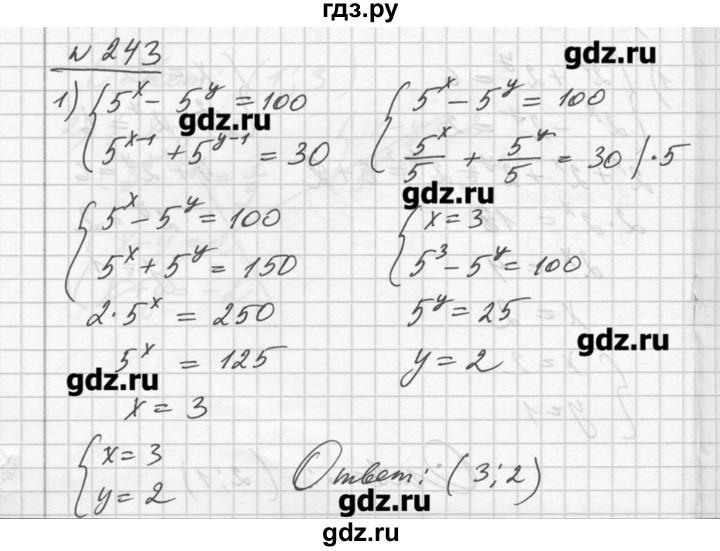 гдз.ру
N 243
gdz.ru
1) { 5^x - 5^y = 100
5^{x-1} + 5^{y-1} = 30
gdz.ru
{ 5^x - 5^y = 100
5^x/5 + 5^y/5 = 30 /·5
gdz.ru
{ 5^x - 5^y = 100
5^x + 5^y = 150
2·5^x = 250
5^x = 125
gdz.ru
x = 3
{ x = 3
5^3 - 5^y = 100
5^y = 25
gdz.ru
y = 2
{ x = 3
y = 2
Ответ: (3; 2)
gdz.ru
gdz.ru